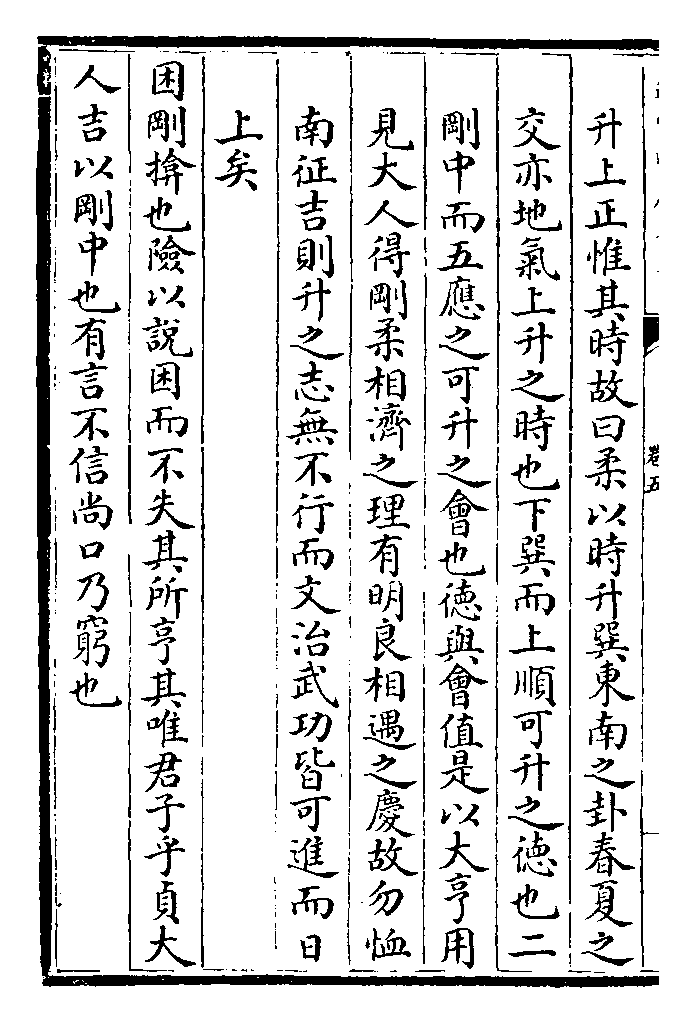 卷五
升上正惟其時故曰柔以時升巽東南之卦春夏之
交亦地氣上升之時也下巽而上順可升之德也二
剛中而五應之可升之會也德與會值是以大亨用
見大人得剛柔相濟之理有明良相遇之慶故勿恤
南征吉則升之志無不行而文治武功皆可進而日
上矣
困剛揜也險以說困而不失其所亨其唯君子乎貞大
人吉以剛中也有言不信尚口乃窮也